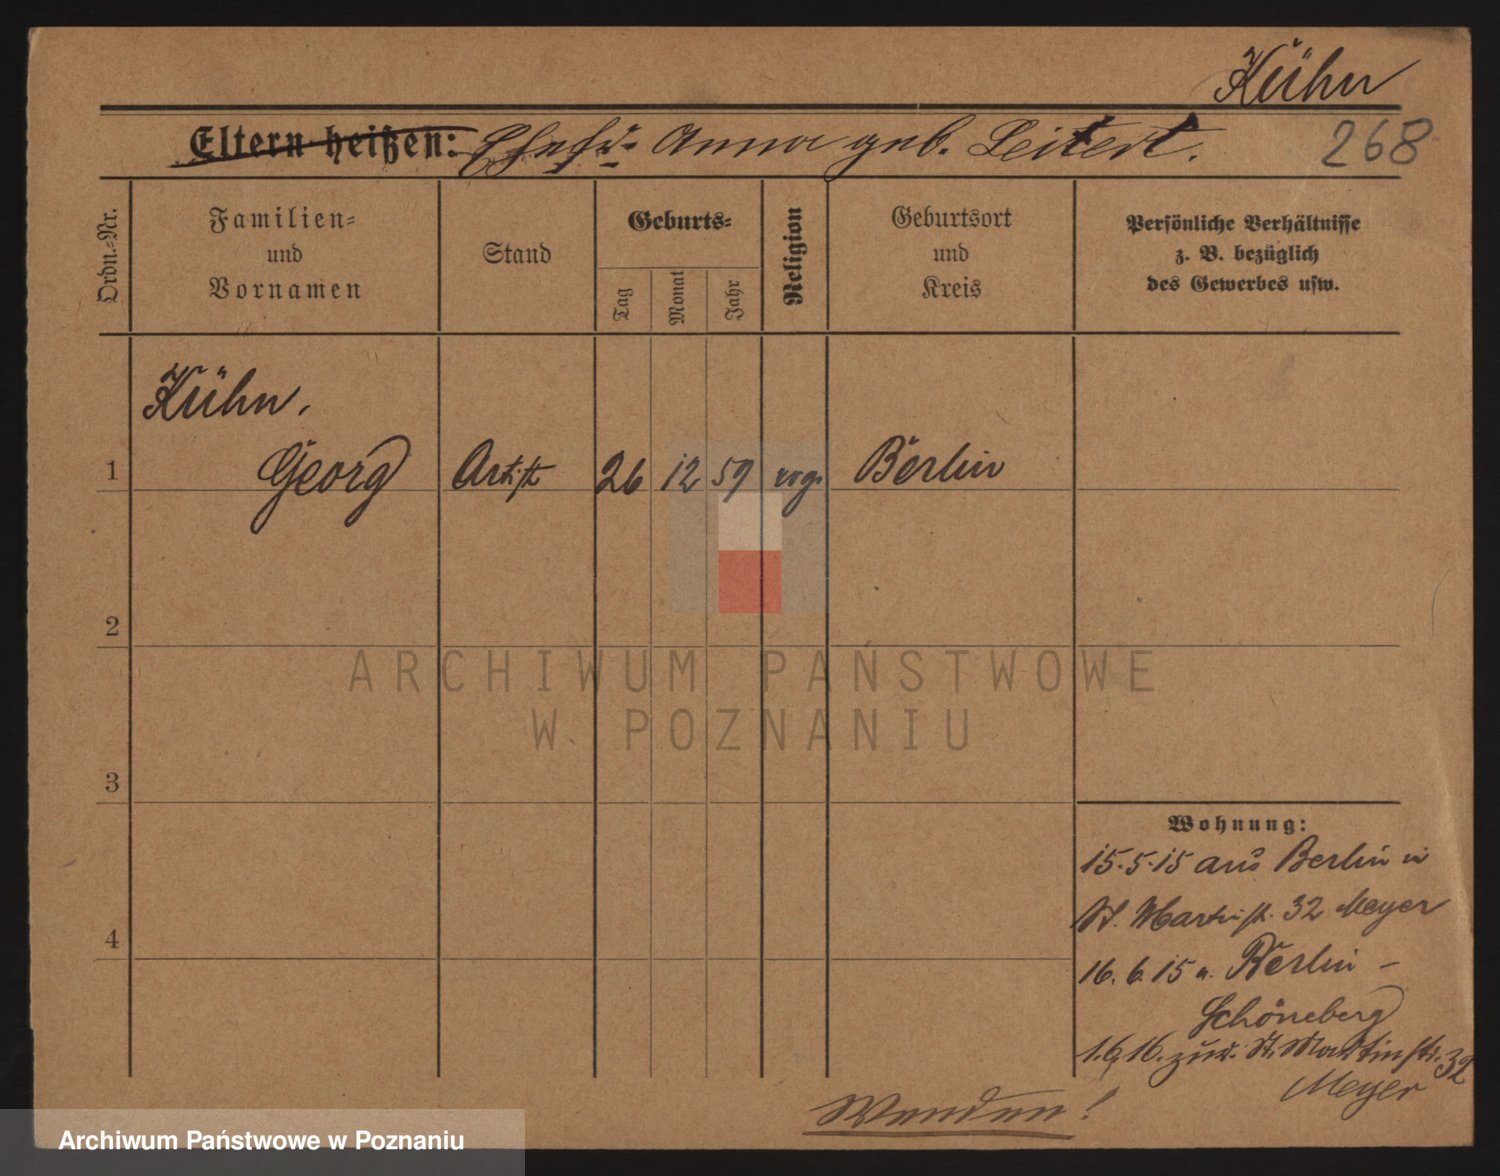 Kühn
Eltern heißen: Ehefr. Anna geb. Leitert.
268
Ordn.-Nr.
Familien-
und
Vornamen
Stand
Geburts-
Tag
Monat
Jahr
Religion
Geburtsort
und
Kreis
Persönliche Verhältnisse
z. B. bezüglich
des Gewerbes usw.
Kühn,
1 Georg Artist 26 12 59 evg. Berlin
2
ARCHIWUM PAŃSTWOWE
W POZNANIU
3
Wohnung:
15.5.15 aus Berlin in
St. Martinstr. 32 Meyer
4
16.6.15 n. Berlin –
Schöneberg
1.6.16. zur. St. Martinstr. 32
Meyer
Wenden!
Archiwum Państwowe w Poznaniu